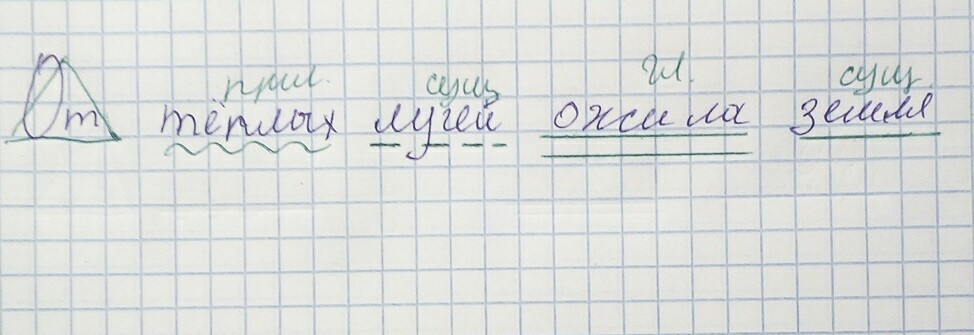 прил. сущ гл. сущ
От тёплых лучей ожила земля